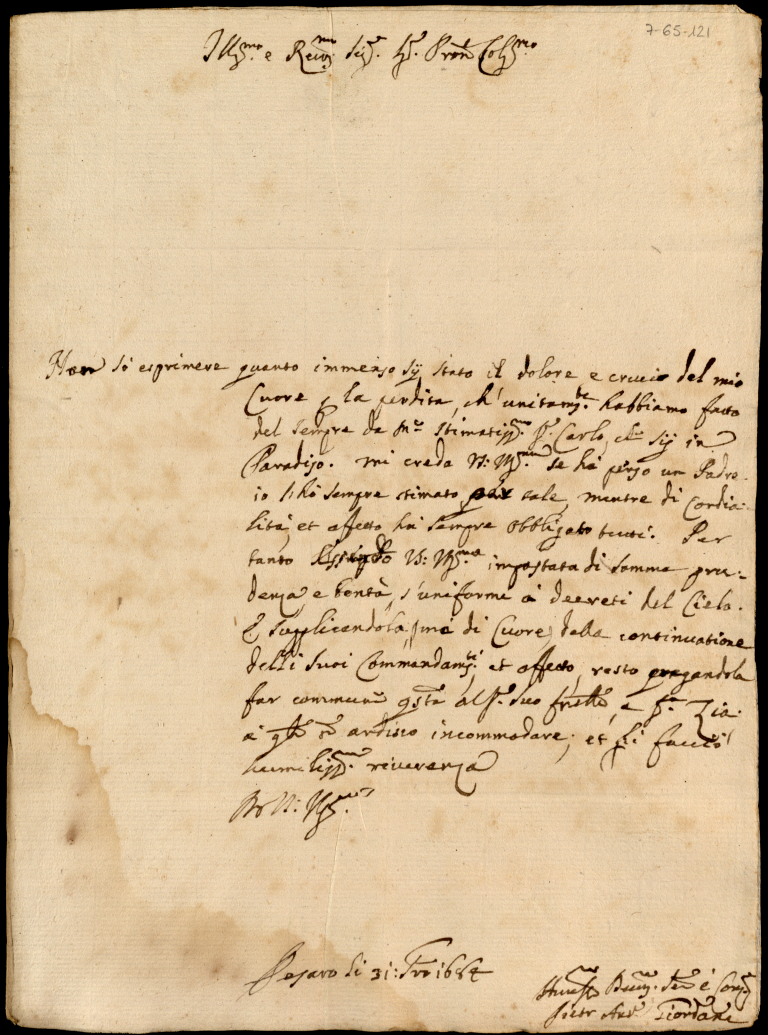 7-65-121
Ill.mo e Rev.mo Sig.r Sig.r Pron Col.mo
Non sò esprimere quanto immenso sij stato il dolore e crucio del mio
Cuore p la perdita, ch'unitam.te habbiamo fatto
del sempre da me stimatiss.mo Sr. Carlo, che sij in
Paradiso. mi creda V: Ill.ma se hà perso un Padre
io l'hò sempre stimato per tale, mentre di cordia:
lità, et affetto hà sempre obbligato tutti. Per
tanto V: Ill.ma impastata di somma pru:
denza e bontà, s'uniformi à decreti del Cielo.
E supplicandola (mà di Cuore) della continuatione
delli suoi Commandam.ti, et affetto, resto pregandola
far commune qsta al Sr. suo frello, e Sra. Zia
à qli nō ardisco incommodare, et gli faccio
humiliss.ma reverenza
Di V: Ill.ma
Pesaro li 31: 1684
Humiss.o Dev.mo Ser.e
Pietr Ant.o Giordani